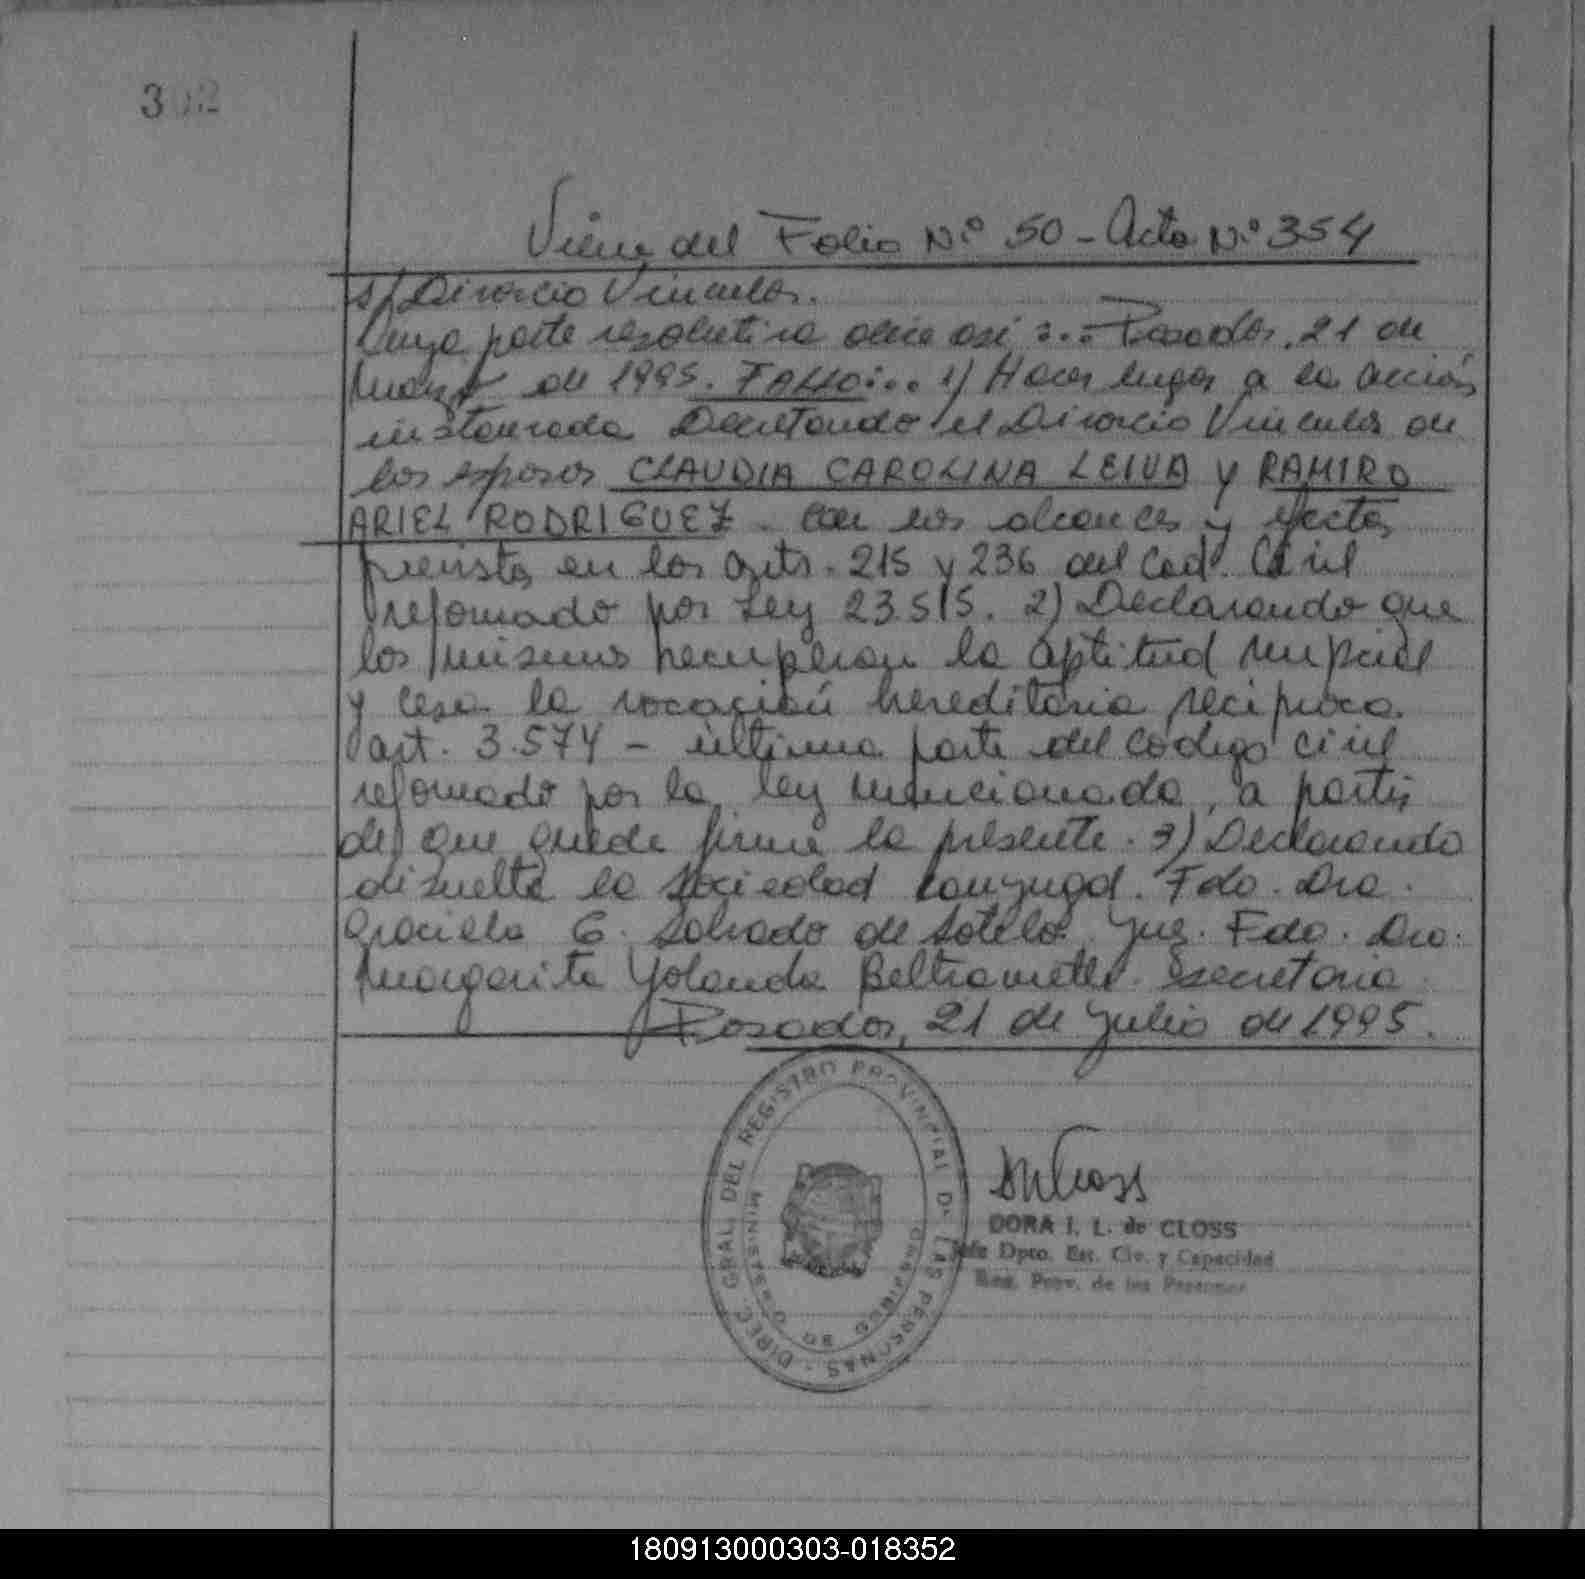 302
Viene del Folio N.º 50 - Acta N.º 354
s/ Divorcio Vincular.
Cuya parte resolutiva dice así:.. Posadas, 21 de
Marzo de 1995. FALLO:.. 1) Hacer lugar a la acción
instaurada Decretando el Divorcio Vincular de
los esposos CLAUDIA CAROLINA LEIVA y RAMIRO
ARIEL RODRIGUEZ - con los alcances y efectos
previstos en los arts. 215 y 236 del Cod. Civil
reformado por Ley 23.515. 2) Declarando que
los mismos recuperan la aptitud nupcial
y cesa la vocación hereditaria recíproca.
art. 3.574 - última parte del código civil
reformado por la ley mencionada, a partir
de que quede firme la presente. 3) Declarando
disuelta la sociedad conyugal. Fdo. Dra.
Graciela G. Salvado de Sotelo. Juez. Fdo. Dra.
Margarita Yolanda Beltrametti. Secretaria.
Posadas, 21 de Julio de 1995.
DIREC. GRAL. DEL REGISTRO PROVINCIAL DE LAS PERSONAS
MINISTERIO DE GOBIERNO
DORA I. L. de CLOSS
Jefe Dpto. Est. Civ. y Capacidad
Reg. Prov. de las Personas
180913000303-018352